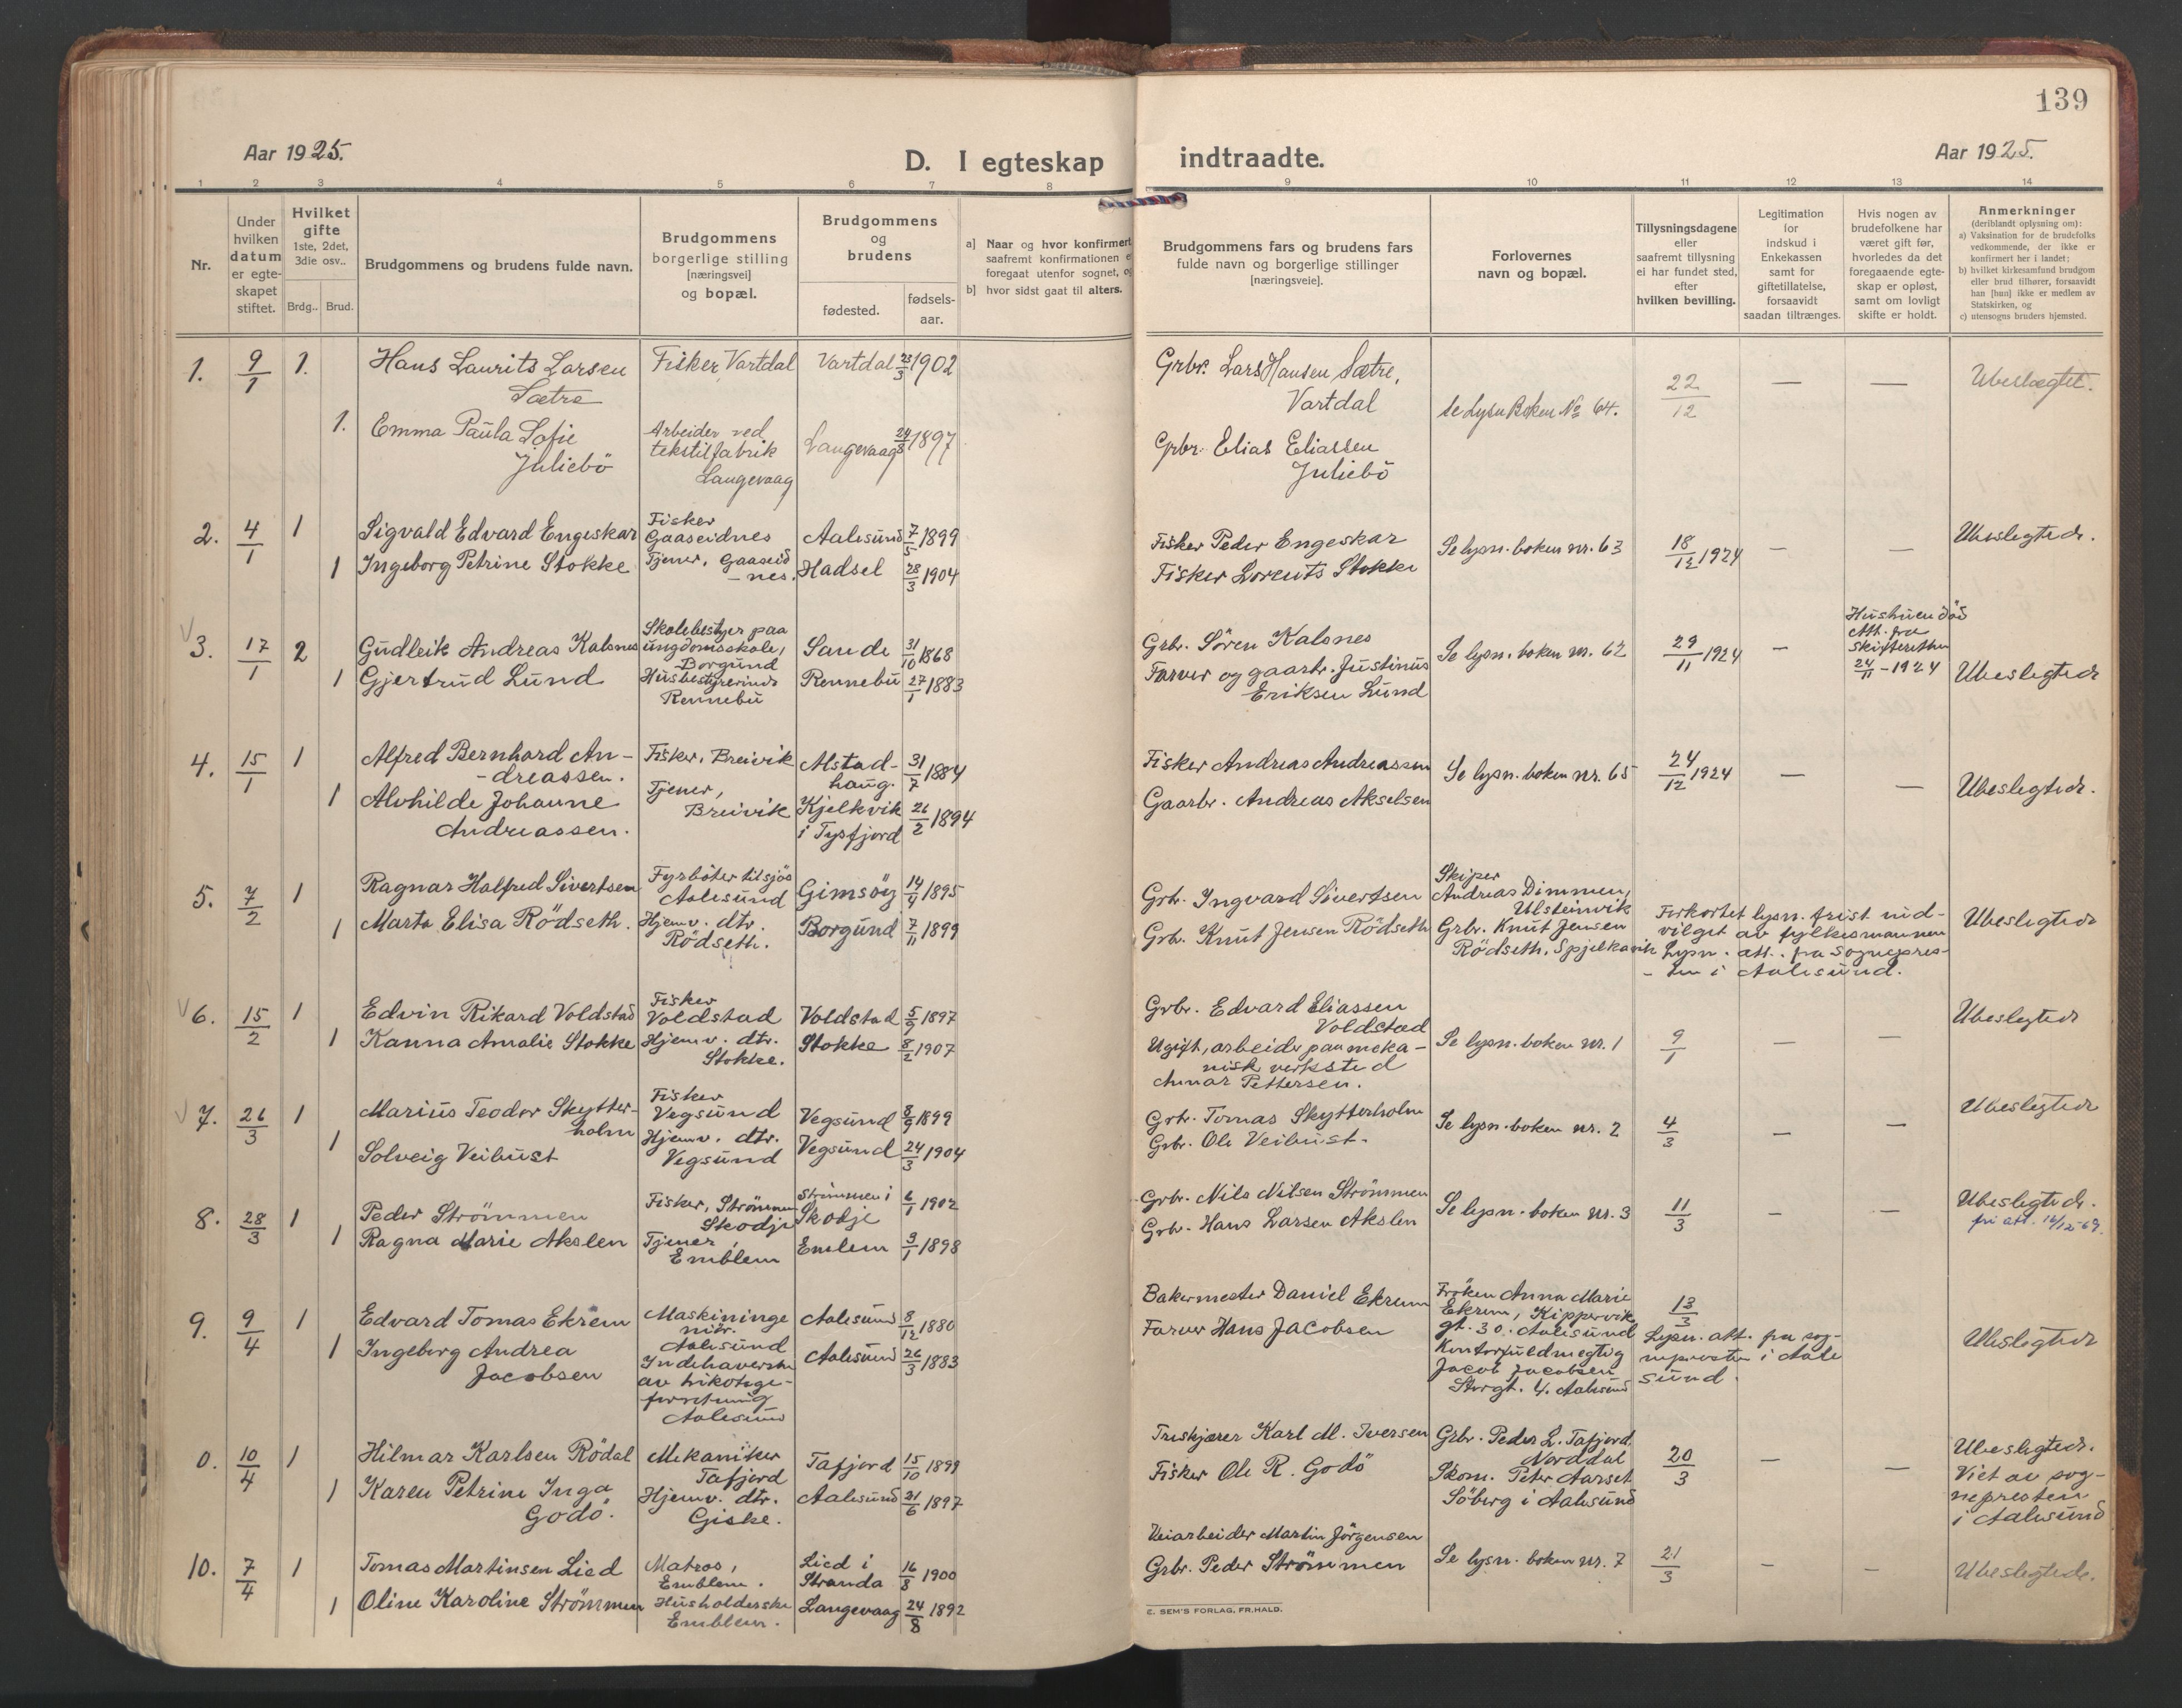 139
Aar 1925.
D. I egteskap indtraadte.
Aar 1925.
1 2 3 4 5 6 7 8 9 10 11 12 13 14
Nr.
Under
hvilken
datum
er egte-
skapet
stiftet.
Hvilket
gifte
1ste, 2det,
3die osv..
Brdg.. Brud.
Brudgommens og brudens fulde navn.
Brudgommens
borgerlige stilling
[næringsvei]
og bopæl.
Brudgommens
og
brudens
fødested.
fødsels-
aar.
a] Naar og hvor konfirmert
saafremt konfirmationen e
foregaat utenfor sognet, og
b] hvor sidst gaat til alters.
Brudgommens fars og brudens fars
fulde navn og borgerlige stillinger
[næringsveie].
Forlovernes
navn og bopæl.
Tillysningsdagene
eller
saafremt tillysning
ei har fundet sted,
efter
hvilken bevilling.
Legitimation
for
indskud i
Enkekassen
samt for
giftetillatelse,
forsaavidt
saadan tiltrænges.
Hvis nogen av
brudefolkene har
været gift før,
hvorledes da det
foregaaende egte-
skap er opløst,
samt om lovligt
skifte er holdt.
Anmerkninger
(deriblandt oplysning om):
a) Vaksination for de brudefolks
vedkommende, der ikke er
konfirmert her i landet;
b) hvilket kirkesamfund brudgom
eller brud tilhører, forsaavidt
han [hun] ikke er medlem av
Statskirken, og
c) utensogns bruders hjemsted.
1. 9/1 1. Hans Laurits Larsen
Sætre
Fisker Vartdal
Vartdal 23/3 1902
1. Emma Paula Sofie
Juliebö
Arbeider ved
tekstilfabrik
Langevaag
Langevaag 1897
Grbr. Lars Hansen Sætre,
Vartdal
Grbr. Elias Eliassen
Juliebö
Se Lysn Boken No 64.
22/12 — —
Ubeslægtet.
2. 4/1 1 Sigvald Edvard Engeskar
Fisker
Gaaseidnes
Aalesund 7/5 1899
1 Ingeborg Petrine Stokke
Tjener, Gaaseid
-nes.
Hadsel 28/3 1904
Fisker Peder Engeskar
Fisker Lorents Stokke
Se lysn. boken nr. 63
18/12 1924 — —
Ubeslegtede.
V 3. 17/1 2 Gudleik Andreas Kalsnes
Skolebestyrer paa
ungdomsskole,
Borgund
Sande 31/10 1868
1 Gjertrud Lund
Husbestyrerinde
Rennebu
Rennebu 27/1 1883
Grbr. Sören Kalsnes
Farver og gaarbr. Justinus
Eriksen Lund
Se lysn. boken nr. 62
29/11 1924 —
Hustruen död
Att. fra
skifteretten
24/11 - 1924
Ubeslegtede
4. 15/1 1 Alfred Bernhard An-
-dreassen.
Fisker, Breivik
Alstad-
haug. 31/7 1884
1 Alvhilde Johanne
Andreassen.
Tjener,
Breivik
Kjelkvik
i Tysfjord 26/2 1894
Fisker Andreas Andreassen
Gaarbr. Andreas Akselsen
Se lysn. boken nr. 65
24/12 1924 — —
Ubeslegtede.
5. 7/2 1 Ragnar Halfred Sivertsen
Fyrböter tilsjös
Aalesund
Gimsöy 14/4 1895
1 Marta Elisa Rödseth.
Hjemv. dtr.
Rödseth.
Borgund 7/11 1899
Grbr. Ingvard Sivertsen
Grbr. Knut Jensen Rödseth
Skiper
Andreas Dimmen,
Ulsteinvik
Grbr. Knut Jensen
Rödseth, Spjelkavik
Forkortet lysn. frist ind-
vilget av fylkesmannen
Lysn. att. fra Sognepres-
-ten i Aalesund.
Ubeslegtede
V 6. 15/2 1 Edvin Rikard Voldstad
Fisker
Voldstad
Voldstad 5/9 1897
1 Kanna Amalie Stokke
Hjemv. dtr.
Stokke.
Stokke 8/2 1907
Grbr. Edvard Eliassen
Voldstad
Ugift, arbeider paa meka-
nisk verksted
Annar Pettersen.
Se lysn. boken nr. 1
9/1 — —
Ubeslegtede
V 7. 26/3 1 Marius Teodor Skytter-
holm
Fisker
Vegsund
Vegsund 8/9 1899
1 Solveig Veibust
Hjemv. dtr.
Vegsund
Vegsund 24/3 1904
Grbr. Tomas Skytterholm
Grbr. Ole Veibust.
Se lysn. boken nr. 2
4/3 — —
Ubeslegtede
8. 28/3 1 Peder Strömmen
Fisker, Strömmen
Skodje
Strömmen i
Skodje 6/1 1902
1 Ragna Marie Akslen
Tjener,
Emblem
Emblem 3/1 1898
Grbr. Nils Nilsen Strömmen
Grbr. Hans Larsen Akslen
Se lysn. boken nr. 3
11/3 — —
Ubeslegtede.
9. 9/4 1 Edvard Tomas Ekrem
Maskininge
niör.
Aalesund
Aalesund 8/12 1880
1 Ingeborg Andrea
Jacobsen
Indehaverske
av trikotage-
forretning
Aalesund
Aalesund 26/3 1883
Bakermester Daniel Ekrem
Farver Hans Jacobsen
Fröken Anna Marie
Ekrem, Kippervik
gt. 30. Aalesund
Kontorfuldmegtig
Jacob Jacobsen
Storgt. 4. Aalesund
13/3
Lysn. att. fra sog-
nepresten i Aale
sund.
Ubeslegtede
0. 10/4 1 Hilmar Karlsen Rödal
Mekaniker
Tafjord
Tafjord 15/10 1899
1 Karen Petrine Inga
Godö.
Hjemv. dtr.
Giske.
Aalesund 21/6 1897
Treskjærer Karl M. Iversen
Fisker Ole R. Godö
Grbr. Peder L. Tafjord,
Norddal
Skom. Peter Aarset
Söberg i Aalesund
20/3 — —
Ubeslegtede.
Viet av sog-
nepresten
i Aalesund
10. 7/4 1 Tomas Martinsen Lied
Matros,
Emblem.
Lied i
Stranda 16/8 1900
1 Oline Karoline Strömmen
Husholderske
Emblem.
Langevaag 24/8 1892
Veiarbeider Martin Jörgensen
Grbr. Peder Strömmen
Se lysn. boken nr. 7
21/3 — —
Ubeslegtede.
E. SEM'S FORLAG, FR.HALD.